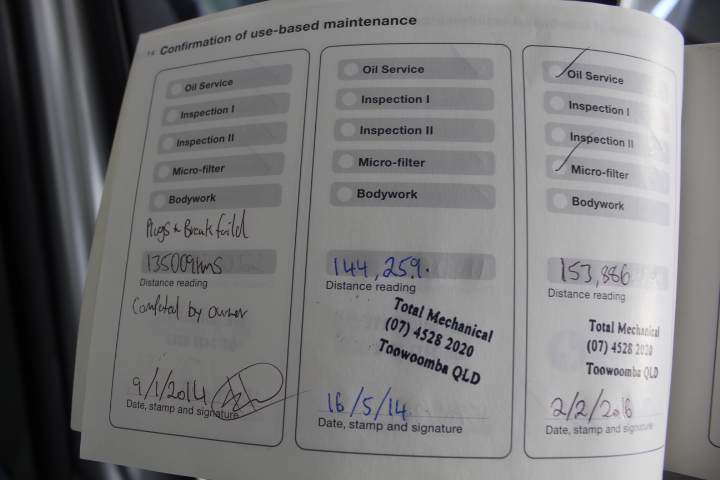 14 Confirmation of use-based maintenance
Oil Service
Inspection I
Inspection II
Micro-filter
Bodywork
Plugs & Break fuild
135009kms
Distance reading
Completed by owner
9/1/2014
Date, stamp and signature
Oil Service
Inspection I
Inspection II
Micro-filter
Bodywork
144,259.
Distance reading
Total Mechanical
(07) 4528 2020
Toowoomba QLD
16/5/14
Date, stamp and signature
Oil Service
Inspection I
Inspection II
Micro-filter
Bodywork
153,886
Distance reading
Total Mechanical
(07) 4528 2020
Toowoomba QLD
2/2/2016
Date, stamp and signature